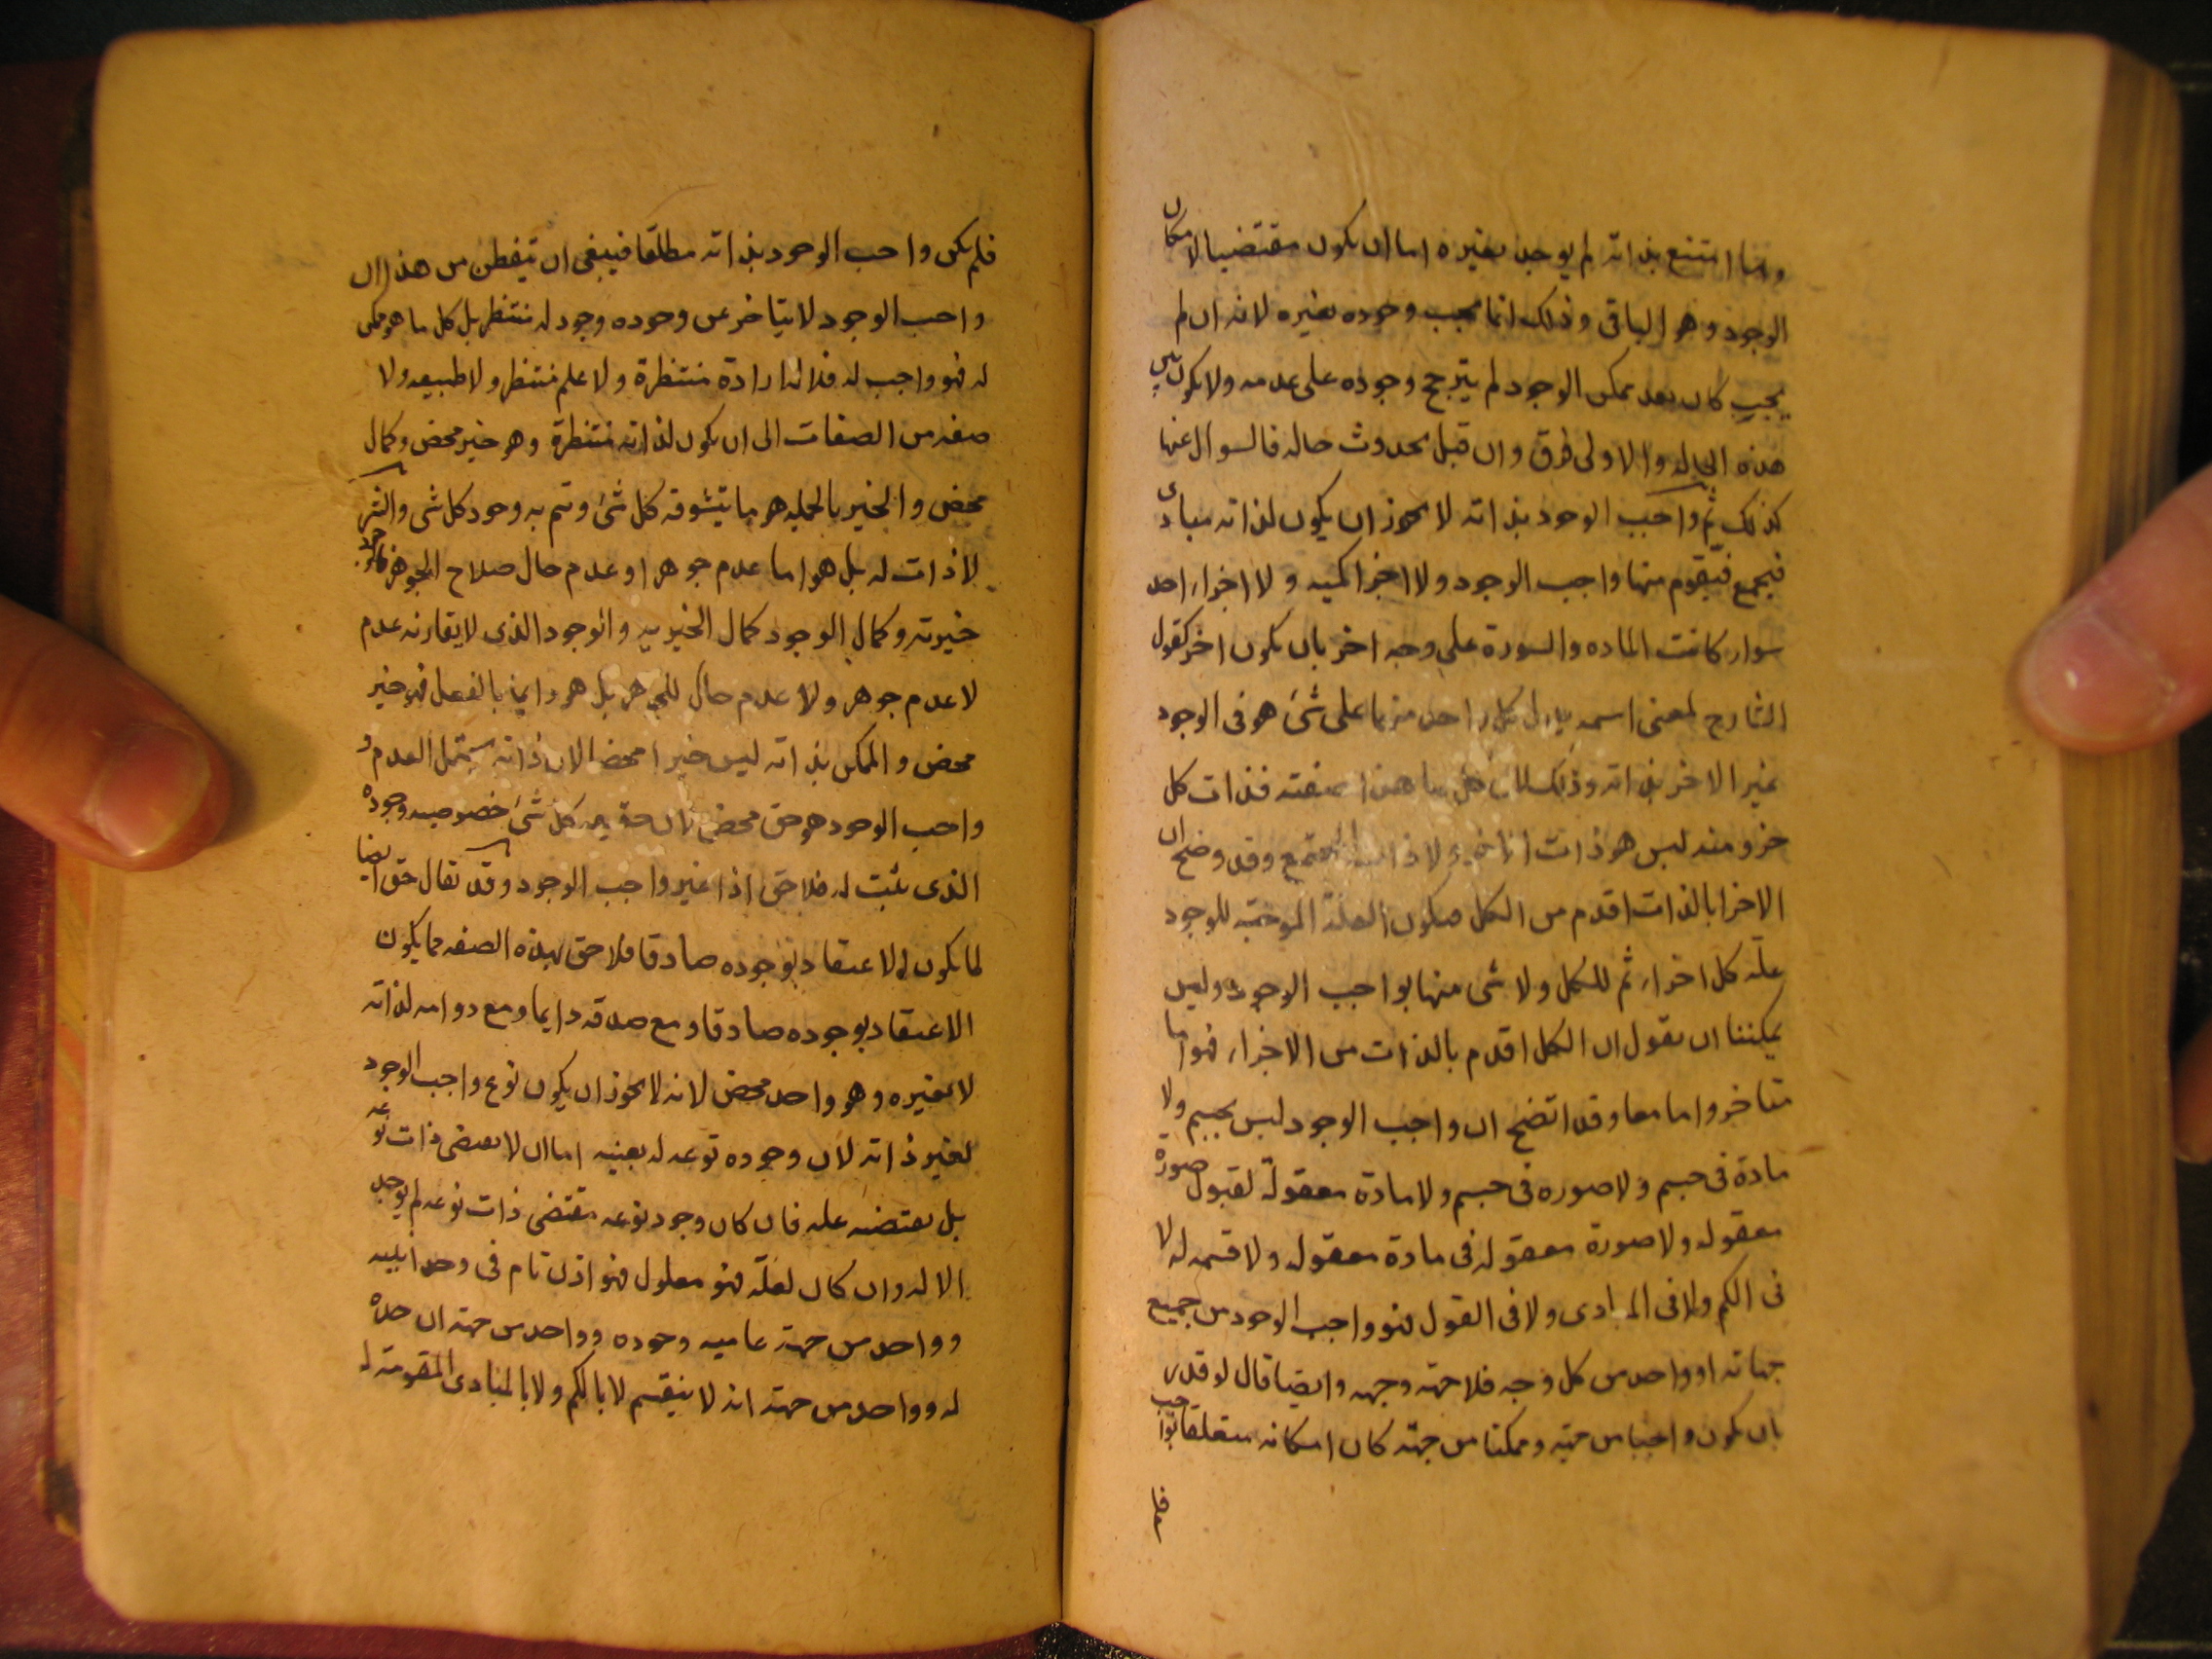 واما امتنع بذاته لم يوجد بغيره اما ان يكون مقتضيا لامكان
الوجود وهو الباقى وذلك انما يجب وجوده بغيره لانه ان لم
يجب كان بعد ممكن الوجود لم يترجح وجوده على عدمه ولا يكون بين
هذه الحاله والاولى فرق وان قيل بحدوث حاله فالسوال عنها
كذلك ثم واجب الوجود بذاته لا يجوز ان يكون لذاته مبادى
فيجمع فيقوم منها واجب الوجود ولا اجزا كميه ولا اجزاء احد
سواء كانت الماده والصورة على وجه اخر بان يكون اجز كقول
الشارح لمعنى اسمه يدل كل واحد منهما على شئ هو فى الوجود
غير الاخر بذاته وذلك لان كل ما هذا صفته فذات كل
جزو منه ليس هو ذات الاخر ولا ذات المجتمع وقد وضح ان
الاجزا بالذات اقدم من الكل فيكون العلة الموجبة للوجود
علة كل اجزاء ثم للكل ولا شى منها بواجب الوجود وليس
يمكننا ان نقول ان الكل اقدم بالذات من الاجزاء فهو اما
متاخر واما معا وقد اتضح ان واجب الوجود ليس بجسم ولا
مادة فى جسم ولا صوره فى جسم ولا مادة معقولة لقبول صورة
معقوله ولا صورة معقوله فى مادة معقوله ولا قسمه له لا
فى الكم ولا فى المبادى ولا فى القول فهو واجب الوجود من جميع
جهاته اذ واحد من كل وجه فلا جهة وجهه وايضا قال لو قدر
بان يكون واجبا من جهه وممكنا من جهة كان امكانه متعلقا بواجب
فلم يكن واجب الوجود بذاته مطلقا فينبغى ان يتفطن من هذا ان
واجب الوجود لا يتاخر عن وجوده وجود له منتظر بل كل ما هو ممكن
له فهو واجب له فلا له ارادة منتظرة ولا علم منتظر ولا طبيعه ولا
صفه من الصفات الى ان يكون لذاته منتظرة وهو خير محض وكمال
محض والخير بالجمله هو ما يتشوقه كل شئ ويتم به وجود كل شى والشر
لا ذات له بل هو اما عدم جوهر او عدم حال صلاح الجوهر فالوجود
خيرية وكمال الوجود كمال الخيريه والوجود الذى لا يقارنه عدم
لا عدم جوهر ولا عدم حال للجوهر بل هو دايما بالفعل فهو خير
محض والممكن بذاته ليس خيرا محضا لان ذاته يحتمل العدم و
واجب الوجود هو حق محض لان حقيقه كل شئ خصوصيه وجوده
الذى يثبت له فلا حق اذا غير واجب الوجود وقد يقال حق ايضا
لما يكون له الاعتقاد بوجوده صادقا فلا حق بهذه الصفه مما يكون
الاعتقاد بوجوده صادقا ومع صدقه دايما ومع دوامه لذاته
لا لغيره وهو واحد محض لانه لا يجوز ان يكون نوع واجب الوجود
لغير ذاته لان وجوده نوعه له بعينه اما ان لا يقتضى ذات نوعه
بل يقتضيه عله فان كان وجود نوعه مقتضى ذات نوعه لم يوجد
الا له وان كان لعلة فهو معلول فهو اذن تام فى وحدانيته
وواحد من جهة تماميه وجوده وواحد من جهة ان حده
له وواحد من جهة انه لا ينقسم لا بالكم ولا بالمبادى المقومة له